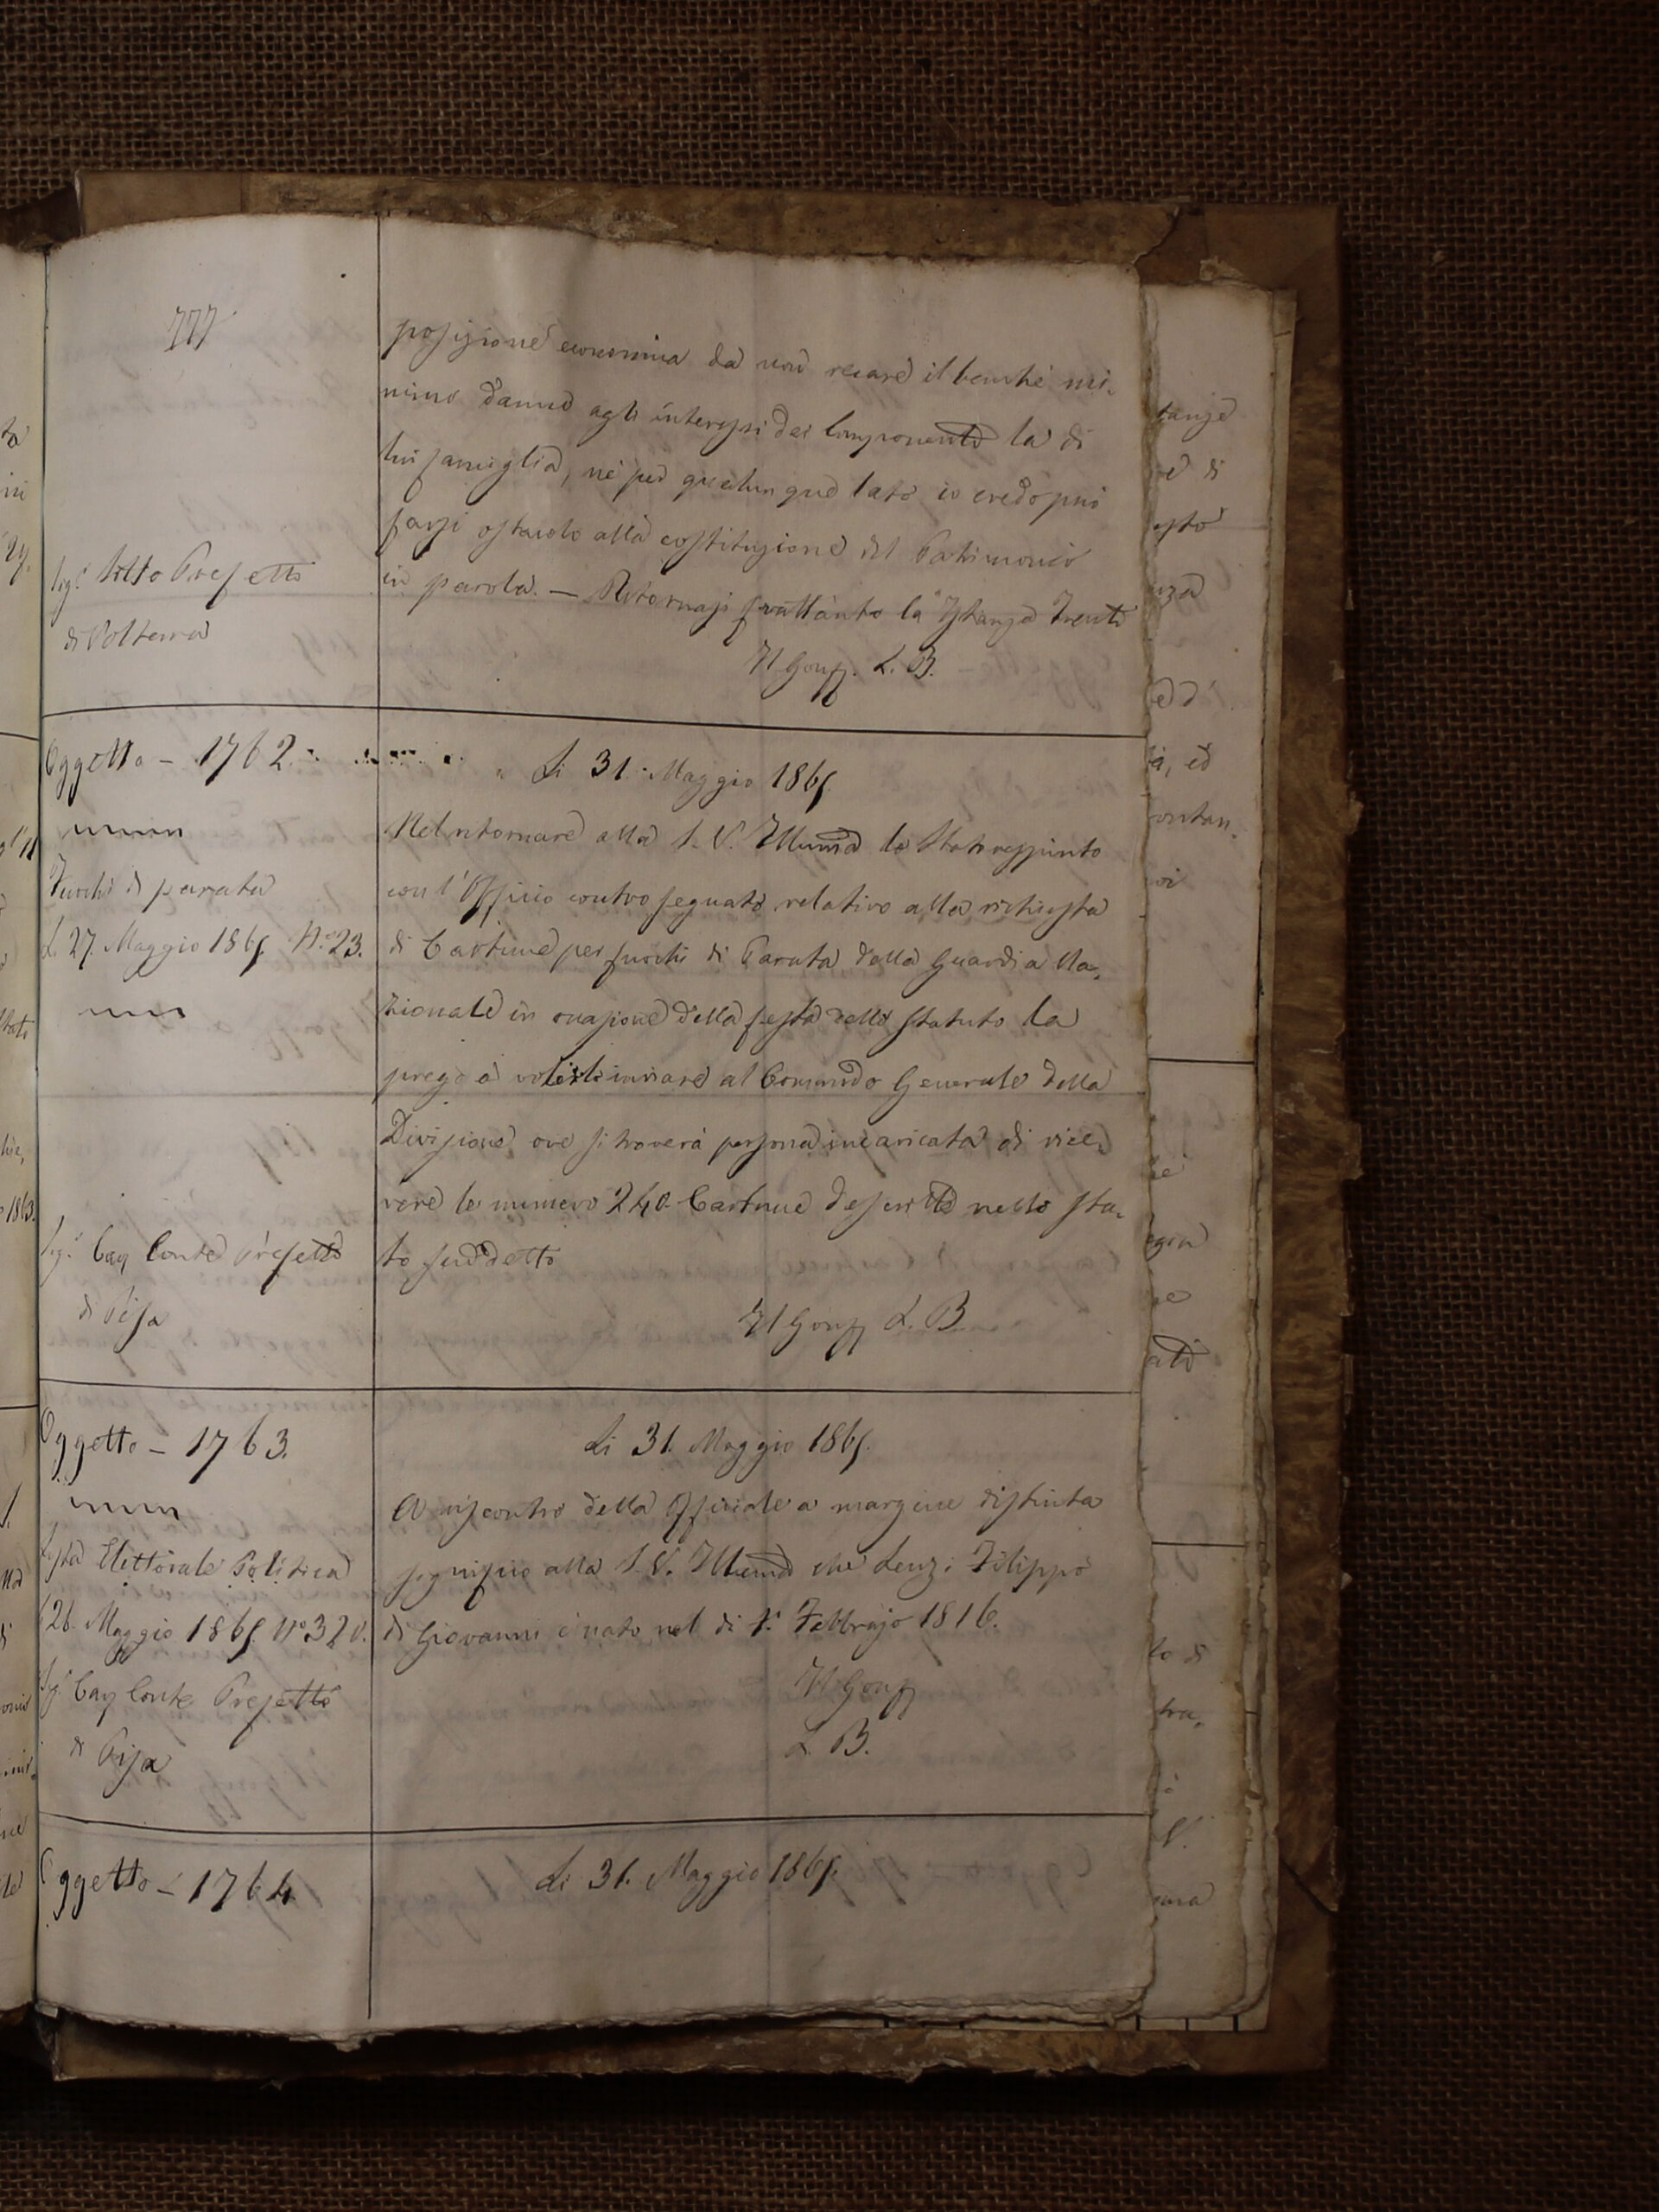 777
posizione economica da non recare il benchè mi-
nimo danno agli interessi dei componenti la di
lui famiglia, nè per qualunque lato io credo può
farsi ostacolo alla costituzione del Patrimonio
in parola. — Ritornasi frattanto la Istanza
Il Gonf. L. B.
Sig. Sotto Prefetto
di Volterra
Oggetto - 1762.
Fuochi di parata
L. 27. Maggio 1865. N.° 23.
Sig.r Cav Conte Prefetto
di Pisa
Li 31. Maggio 1865.
Nel ritornare alla S. V. Illuma lo Stato respinto
con l'Officio contro segnato relativo alla richiesta
di Cartucce per fuochi di Parata della Guardia Na-
zionale in occasione della festa dello Statuto la
prego a volerlo inviare al Comando Generale della
Divisione ove si troverà persona incaricata di rice-
vere le numero 240. Cartucce descritte nello Sta-
to suddetto
Il Gonf L. B
Oggetto - 1763.
Lista Elettorale Politica
26. Maggio 1865. N.°
Sig Cav Conte Prefetto
di Pisa
Li 31. Maggio 1865.
A riscontro della Officiale a margine distinta
significo alla S. V. Illuma che Lenzi Filippo
di Giovanni è nato nel di Febbrajo 1816.
Il Gonf
L B.
Oggetto - 1764
Li 31. Maggio 1865.